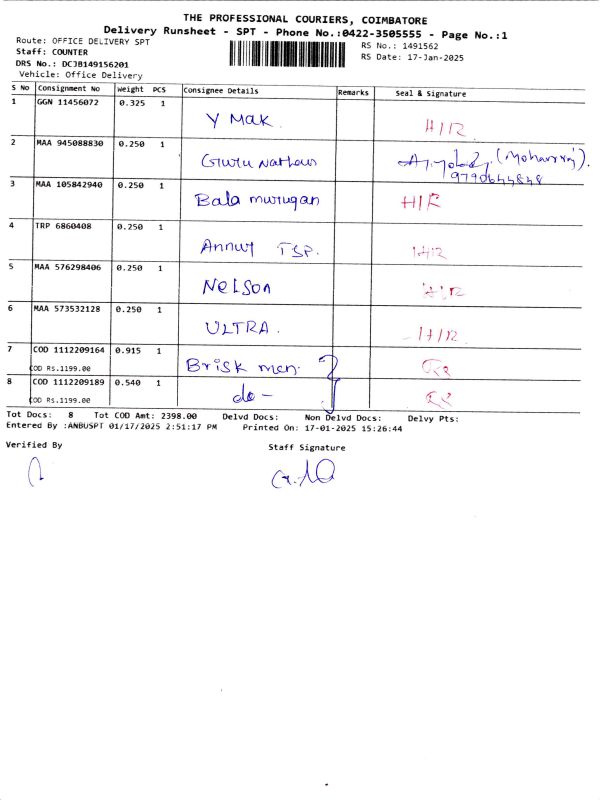 THE PROFESSIONAL COURIERS, COIMBATORE
Delivery Runsheet - SPT - Phone No.:0422-3505555 - Page No.:1
Route: OFFICE DELIVERY SPT
RS No.: 1491562
Staff: COUNTER
RS Date: 17-Jan-2025
DRS No.: DCJB149156201
Vehicle: Office Delivery
S No Consignment No Weight PCS Consignee Details Remarks Seal & Signature
1 GGN 11456072 0.325 1 Y Mak. H/R
2 MAA 945088830 0.250 1 Guru (Mohanraj).
9790644848
3 MAA 105842940 0.250 1 Bala murugan H/R
4 TRP 6860408 0.250 1 Annur TSP. H/R
5 MAA 576298406 0.250 1 Nelson H/R
6 MAA 573532128 0.250 1 ULTRA. H/R
7 COD 1112209164 0.915 1 Brisk men.
COD RS.1199.00
8 COD 1112209189 0.540 1 do -
COD RS.1199.00
Tot Docs: 8 Tot COD Amt: 2398.00 Delvd Docs: Non Delvd Docs: Delvy Pts:
Entered By :ANBUSPT 01/17/2025 2:51:17 PM Printed On: 17-01-2025 15:26:44
Verified By Staff Signature